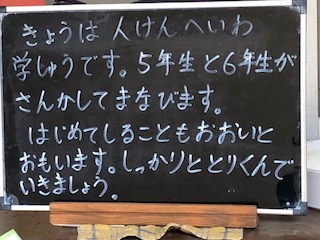 きょうは 人けんへいわ
学しゅうです。5年生と6年生が
さんかしてまなびます。
はじめてしることもおおいと
おもいます。しっかりととりくんで
いきましょう。